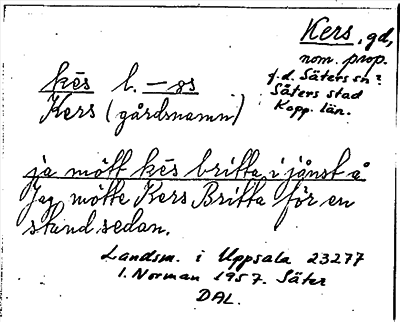 Kers, gd,
nom. prop.
f.d. Säters sn?
Säters stad
Kopp. län.
kēs l. – ōs
Kers (gårdsnamn)
ja mött kēs britta i jånst å
Jag mötte Kers Britta för en
stund sedan.
Landsm. i Uppsala 23277
I. Norman 1957. Säter
DAL.